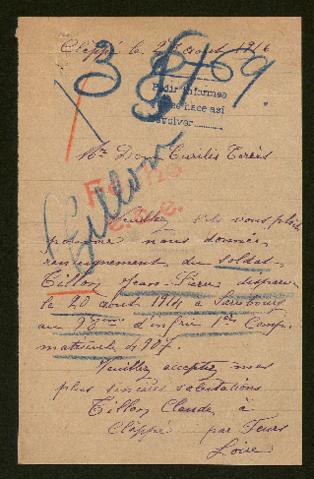 Cleppé le 2 aout 1916
3 8/169
Pedir informes
Hace asi
Devolver
Mr Don
Tillon
Veuillez s'ils vous plait
pouvoir nous donner
renseignement du soldat
Tillon Jean-Pierre disparu
le 20 aout 1914 a Sarrebourg
au d'infrie 1ère Comp.
matricule 4907
Veuillez acceptez mes
plus sincères salutations
Tillon Claude à
Cleppé par Feurs
Loire